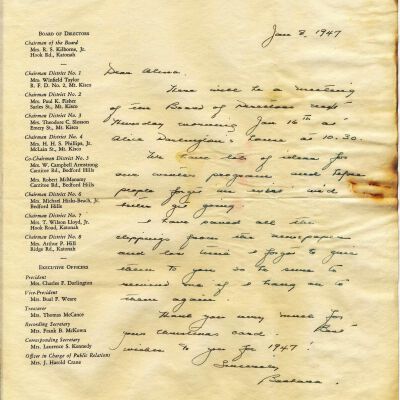 BOARD OF DIRECTORS
Chairman of the Board
Mrs. R. S. Kilborne, Jr.
Hook Rd., Katonah
Chairman District No. 1
Mrs. Winfield Taylor
R. F. D. No. 2, Mt. Kisco
Chairman District No. 2
Mrs. Paul K. Fisher
Sarles St., Mt. Kisco
Chairman District No. 3
Mrs. Theodore C. Sleeson
Emery St., Mt. Kisco
Chairman District No. 4
Mrs. H. H. S. Phillips, Jr.
McLain St., Mt. Kisco
Co-Chairman District No. 5
Mrs. W. Campbell Armstrong
Cantitoe Rd., Bedford Hills
Mrs. Robert McManamy
Cantitoe Rd., Bedford Hills
Chairman District No. 6
Mrs. Michael Hicks-Beach, Jr.
Bedford Hills
Chairman District No. 7
Mrs. T. Wilson Lloyd, Jr.
Hook Road, Katonah
Chairman District No. 8
Mrs. Arthur P. Hill
Ridge Rd., Katonah
EXECUTIVE OFFICERS
President
Mrs. Charles F. Darlington
Vice-President
Mrs. Bual P. Weare
Treasurer
Mrs. Thomas McCance
Recording Secretary
Mrs. Frank B. McKown
Corresponding Secretary
Mrs. Laurence S. Kennedy
Officer in Charge of Public Relations
Mrs. J. Harold Crane
Jan 8, 1947
Dear
There will be a meeting
of the Board of Directors next
Thursday morning Jan 16th at
Alice Darlington's home at 10:30.
We have lots of ideas for
our program and before
people forget we
get going.
I have saved all the
clippings from the newspaper
and I forgot to give
them to you so be sure to
remind me if I hang on to
them again.
Thank you very much for
your Christmas card. Best
wishes to you for 1947!
Sincerely,
Barbara